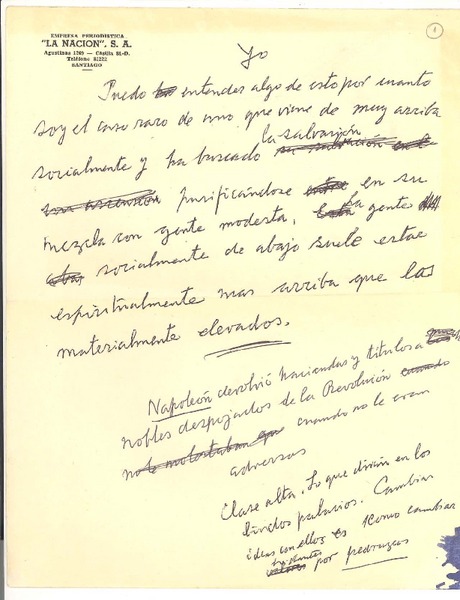 EMPRESA PERIODISTICA
"LA NACION", S. A.
Agustinas 1269 — Casilla 81-D.
Teléfono 82222
SANTIAGO
1
Yo
Puedo entender algo de esto por cuanto
soy el caso raro de uno que viene de muy arriba
socialmente y ha buscado la salvación
purificándose en su
mezcla con gente modesta. La gente
socialmente de abajo suele estar
espiritualmente mas arriba que los
materialmente elevados.
Napoleón devolvió haciendas y títulos a
nobles despojados de la Revolución
cuando no le eran
adversos
Clase alta. Lo que dirán en los
lindos palacios. Cambiar
ideas con ellos es como cambiar
brillantes por pedruzcos